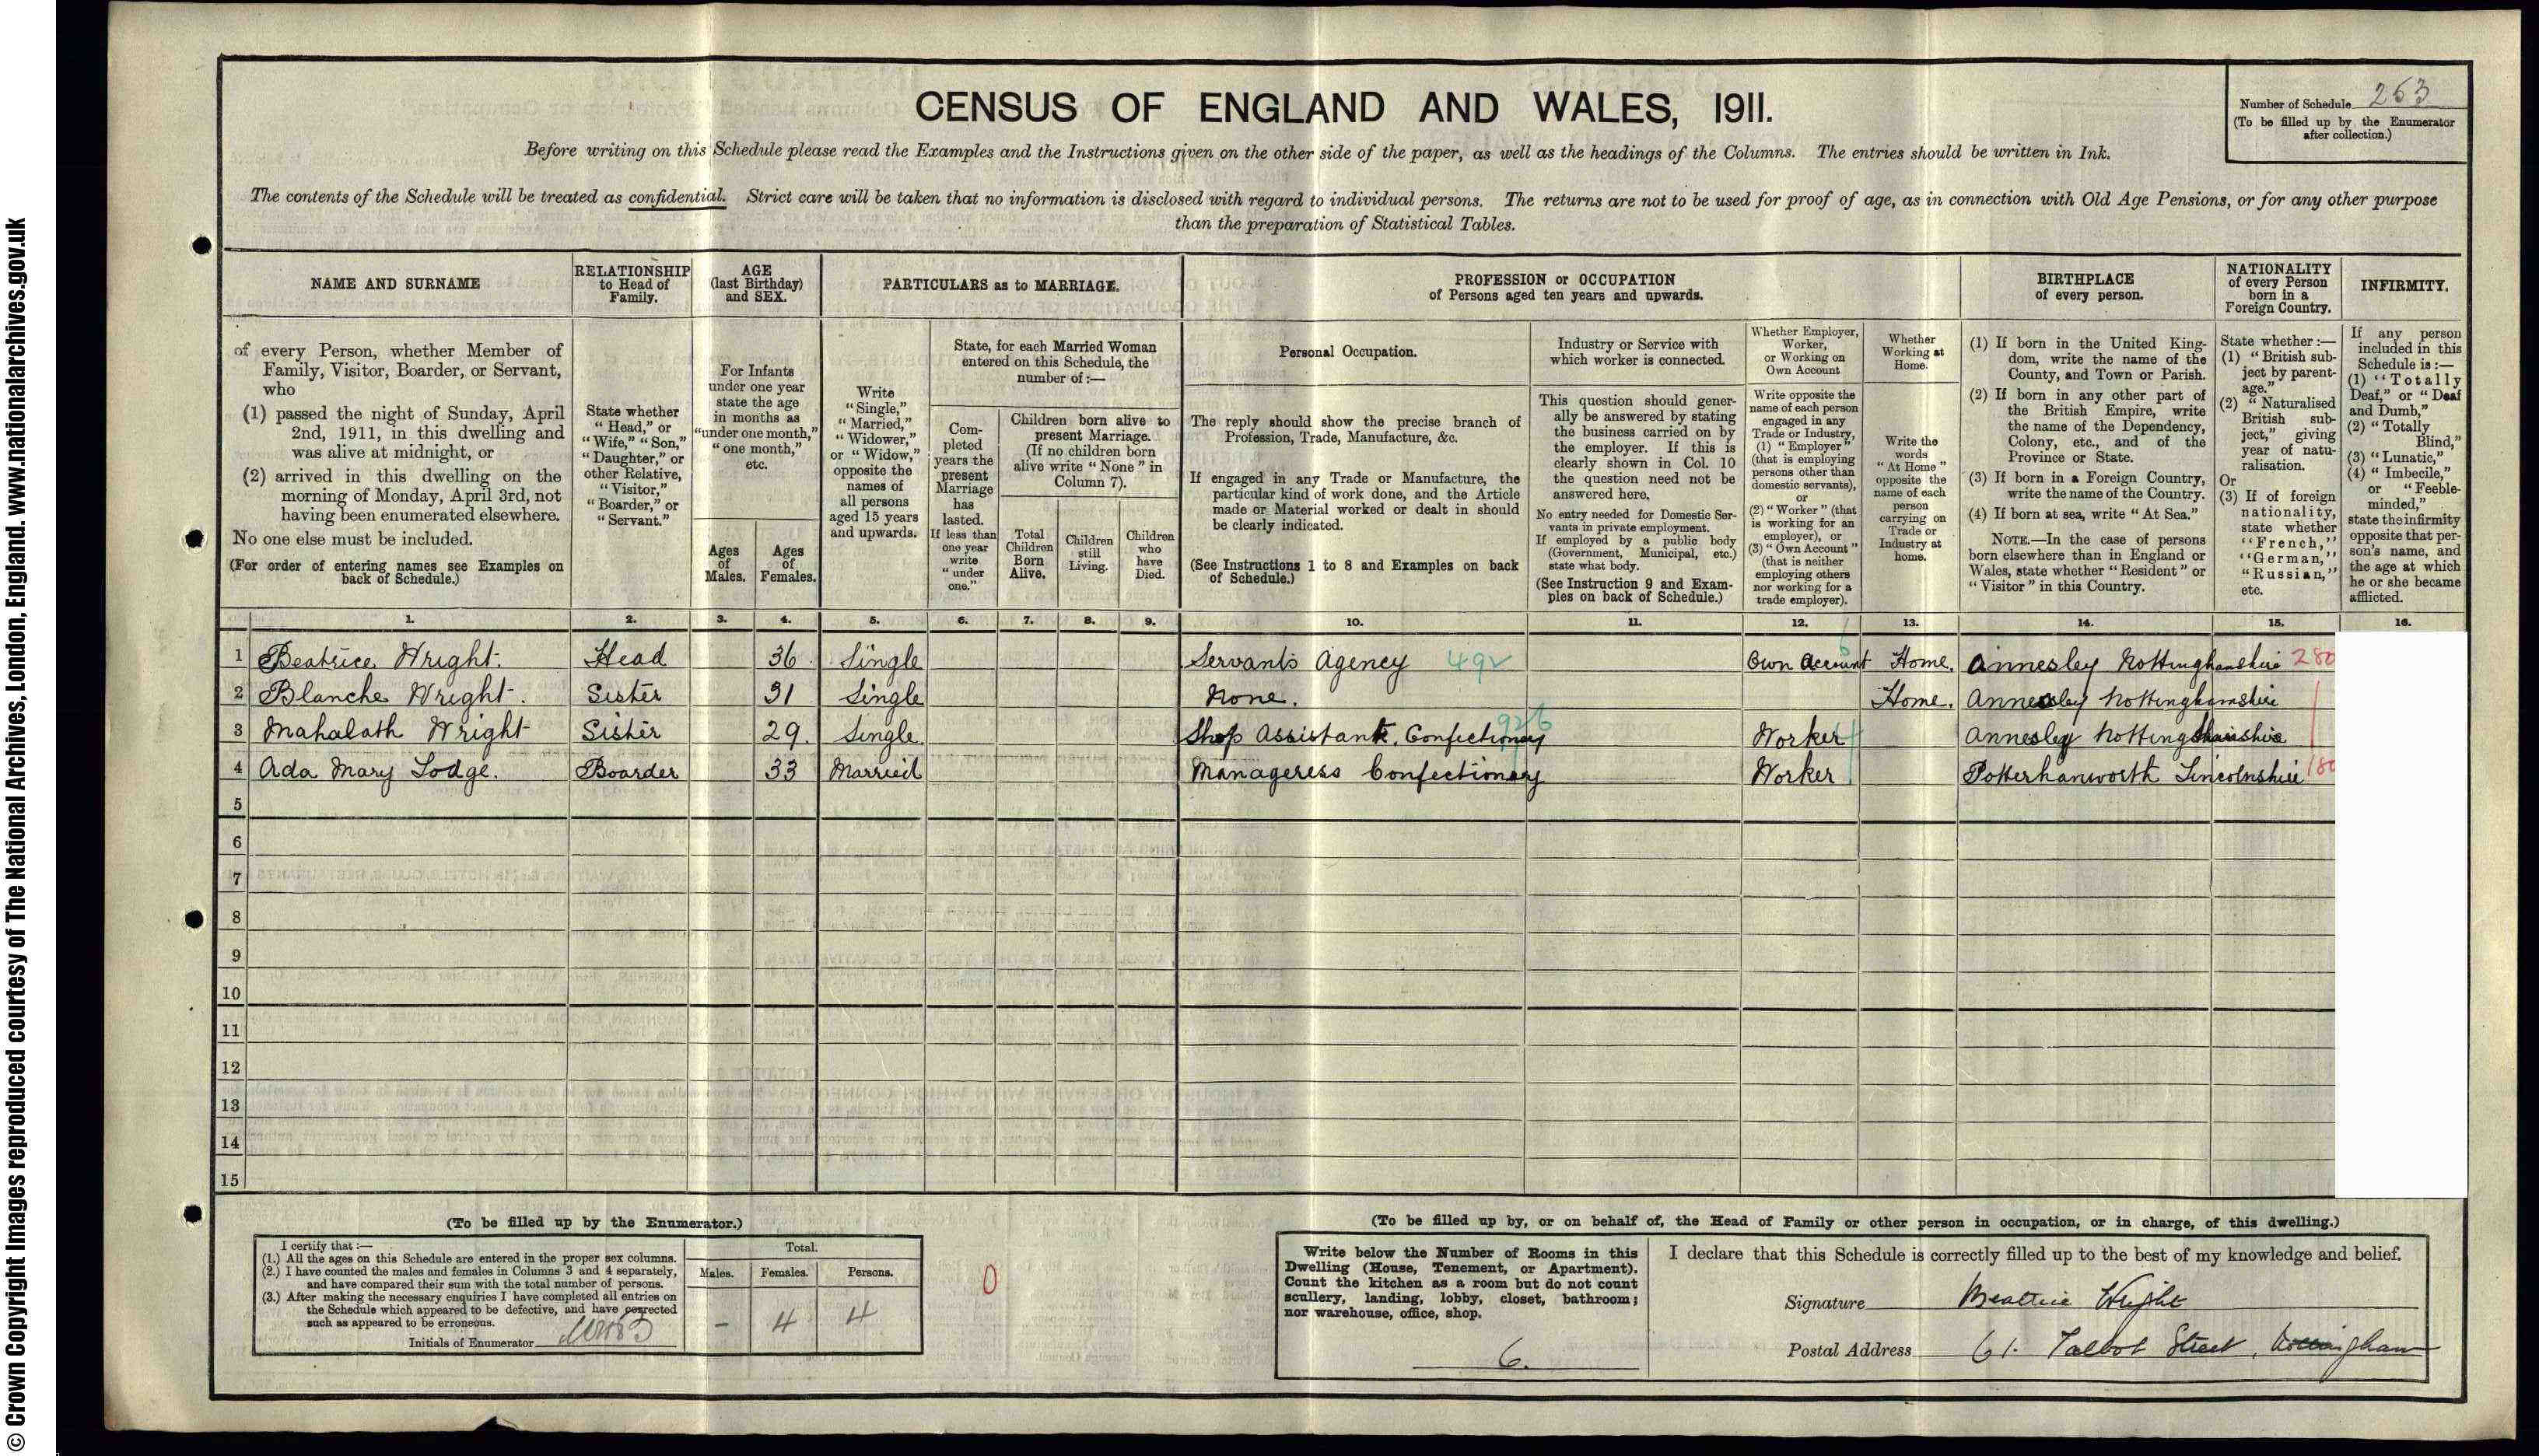 © Crown Copyright Images reproduced courtesy of The National Archives, London, England. www.nationalarchives.gov.uk
CENSUS OF ENGLAND AND WALES, 1911.
Number of Schedule 253
(To be filled up by the Enumerator
after collection.)
Before writing on this Schedule please read the Examples and the Instructions given on the other side of the paper, as well as the headings of the Columns. The entries should be written in Ink.
The contents of the Schedule will be treated as confidential. Strict care will be taken that no information is disclosed with regard to individual persons. The returns are not to be used for proof of age, as in connection with Old Age Pensions, or for any other purpose
than the preparation of Statistical Tables.
NAME AND SURNAME
of every Person, whether Member of
Family, Visitor, Boarder, or Servant,
who
(1) passed the night of Sunday, April
2nd, 1911, in this dwelling and
was alive at midnight, or
(2) arrived in this dwelling on the
morning of Monday, April 3rd, not
having been enumerated elsewhere.
No one else must be included.
(For order of entering names see Examples on
back of Schedule.)
RELATIONSHIP
to Head of
Family.
State whether
"Head," or
"Wife," "Son,"
"Daughter," or
other Relative,
"Visitor,"
"Boarder," or
"Servant."
AGE
(last Birthday)
and SEX.
For Infants
under one year
state the age
in months as
"under one month,"
"one month,"
etc.
Ages
of
Males.
Ages
of
Females.
PARTICULARS as to MARRIAGE.
Write
"Single,"
"Married,"
"Widower,"
or "Widow,"
opposite the
names of
all persons
aged 15 years
and upwards.
State, for each Married Woman
entered on this Schedule, the
number of:—
Com-
pleted
years the
present
Marriage
has
lasted.
If less than
one year
write
"under
one."
Children born alive to
present Marriage.
(If no children born
alive write "None" in
Column 7).
Total
Children
Born
Alive.
Children
still
Living.
Children
who
have
Died.
PROFESSION or OCCUPATION
of Persons aged ten years and upwards.
Personal Occupation.
The reply should show the precise branch of
Profession, Trade, Manufacture, &c.
If engaged in any Trade or Manufacture, the
particular kind of work done, and the Article
made or Material worked or dealt in should
be clearly indicated.
(See Instructions 1 to 8 and Examples on back
of Schedule.)
Industry or Service with
which worker is connected.
This question should gener-
ally be answered by stating
the business carried on by
the employer. If this is
clearly shown in Col. 10
the question need not be
answered here.
No entry needed for Domestic Ser-
vants in private employment.
If employed by a public body
(Government, Municipal, etc.)
state what body.
(See Instruction 9 and Exam-
ples on back of Schedule.)
Whether Employer,
Worker,
or Working on
Own Account
Write opposite the
name of each person
engaged in any
Trade or Industry,
(1) "Employer"
(that is employing
persons other than
domestic servants),
or
(2) "Worker" (that
is working for an
employer), or
(3) "Own Account"
(that is neither
employing others
nor working for a
trade employer).
Whether
Working at
Home.
Write the
words
"At Home"
opposite the
name of each
person
carrying on
Trade or
Industry at
home.
BIRTHPLACE
of every person.
(1) If born in the United King-
dom, write the name of the
County, and Town or Parish.
(2) If born in any other part of
the British Empire, write
the name of the Dependency,
Colony, etc., and of the
Province or State.
(3) If born in a Foreign Country,
write the name of the Country.
(4) If born at sea, write "At Sea."
NOTE.—In the case of persons
born elsewhere than in England or
Wales, state whether "Resident" or
"Visitor" in this Country.
NATIONALITY
of every Person
born in a
Foreign Country.
State whether:—
(1) "British sub-
ject by parent-
age."
(2) "Naturalised
British sub-
ject," giving
year of natu-
ralisation.
Or
(3) If of foreign
nationality,
state whether
"French,"
"German,"
"Russian,"
etc.
INFIRMITY.
If any person
included in this
Schedule is:—
(1) "Totally
Deaf," or "Deaf
and Dumb,"
(2) "Totally
Blind,"
(3) "Lunatic,"
(4) "Imbecile,"
or "Feeble-
minded,"
state the infirmity
opposite that per-
son's name, and
the age at which
he or she became
afflicted.
1. 2. 3. 4. 5. 6. 7. 8. 9. 10. 11. 12. 13. 14. 15. 16.
1 Beatrice Wright. Head 36 Single Servants Agency 492 Own Account Home. Annesley Nottinghamshire 280
2 Blanche Wright. Sister 31 Single None. Home. Annesley Nottinghamshire
3 Mahalath Wright Sister 29. Single Shop Assistant. Confectionary 926 Worker Annesley Nottinghamshire
4 Ada Mary Lodge. Boarder 33 Married Manageress Confectionary Worker Potterhanworth Lincolnshire 180
5
6
7
8
9
10
11
12
13
14
15
(To be filled up by the Enumerator.)
I certify that:—
(1.) All the ages on this Schedule are entered in the proper sex columns.
(2.) I have counted the males and females in Columns 3 and 4 separately,
and have compared their sum with the total number of persons.
(3.) After making the necessary enquiries I have completed all entries on
the Schedule which appeared to be defective, and have corrected
such as appeared to be erroneous.
Initials of Enumerator
Total.
Males. Females. Persons.
– 4 4
0
(To be filled up by, or on behalf of, the Head of Family or other person in occupation, or in charge, of this dwelling.)
Write below the Number of Rooms in this
Dwelling (House, Tenement, or Apartment).
Count the kitchen as a room but do not count
scullery, landing, lobby, closet, bathroom;
nor warehouse, office, shop.
6.
I declare that this Schedule is correctly filled up to the best of my knowledge and belief.
Signature Beatrice Wright
Postal Address 61. Talbot Street, Nottingham